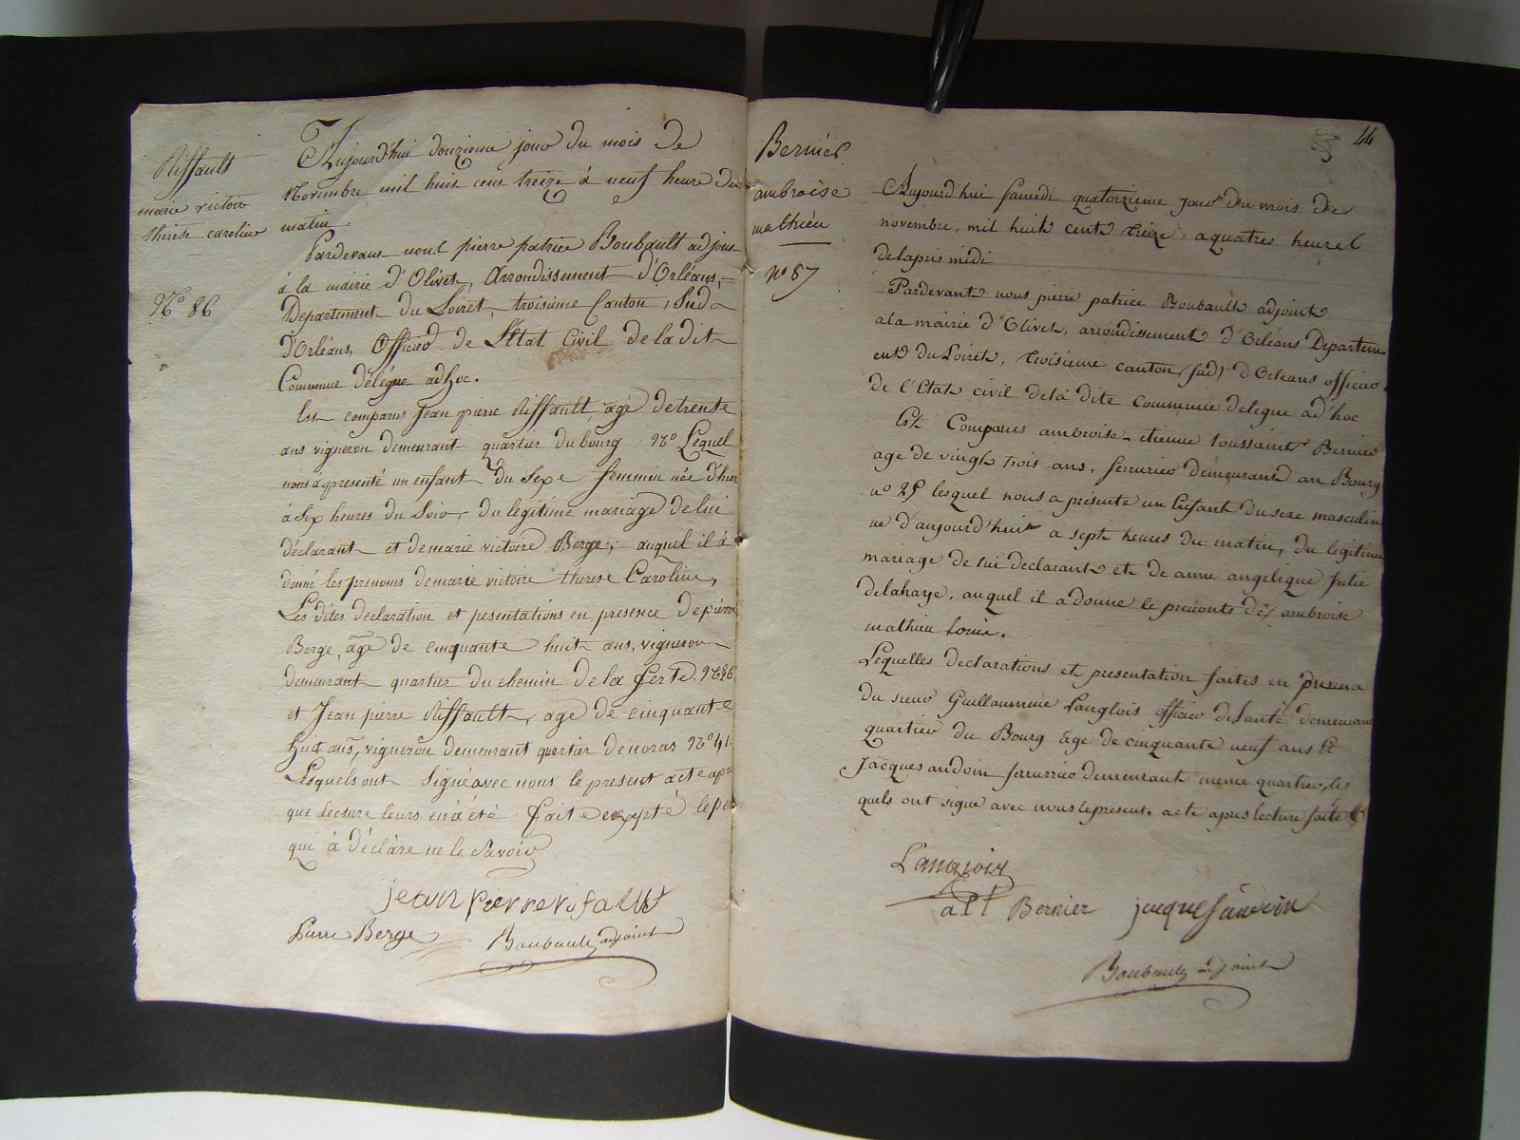 Riffault
marie victoire
thérèse caroline
N.º 86
Aujourd'hui douzieme jour du mois de
Novembre mil huit cent treize à neuf heure du
matin
Pardevant nous pierre patrice Boubault adjoint
à la mairie d'Olivet, Arrondissement d'Orléans,
Departement du Loiret, troisieme Canton, Sud
d'Orléans, Officier de l'Etat Civil de la dit
Commune délégué adhoc.
Est comparus Jean pierre Riffault, agé de trente
ans vigneron demeurant quartier du bourg Nº Lequel
nous a presenté un enfant du Sexe feminin née d'hier
à Six heures du Soir, du légitime mariage de lui
déclarant et de marie victoire Berge, auquel il à
donné les prenoms de marie victoire therese Caroline,
Les dites declaration et pesentations en presence de pierre
Berge, âgé de cinquante huit ans, vigneron
demeurant quartier du chemin de la ferté. Nº 86
et Jean pierre Riffault, age de cinquante
huit ans, vigneron demeurant quartier de noras Nº 41.
Lesquels ont Signé avec nous le present acte apr
que Lecture leurs en à été faite excepté le pe
qui à déclare ne le Savoir
jean pierre rifault
Pierre Berge Boubault adjoint
44
Bernier
ambroise
mathieu
nº 87
Aujourd'hui Samedi quatorzieme jour du mois de
novembre, mil huit cents treize, a quatres heures
de lapris midi
Pardevant nous pierre patrice Boubault adjoint
a la mairie d'Olivet, arrondissement d'Orleans Departem
ent du Loiret, troisieme canton (sud) d'Orleans officier
de l'Etat civil de la dite Commune delegue ad'hoc
Est Comparus ambroise etienne toussaint Bernier
age de vingt trois ans, serrurier demeurand au Bourg
nº 25 lesquel nous a présente un Enfant du sexe masculin
né d'aujourd'huit a septe heures du matin, du legitime
mariage de lui declarant et de anne angelique Julie
Delahaye, auquel il a donne le prenonts de ambroise
mathieu Louis.
Lequelles declarations et presentation faites en presence
du sieur Guillaumme Langlois officier de Santé demeurant
quartier du Bourg age de cinquante neuf ans Et
Jacques audoin serrurier demeurant meme quartier, les
quels ont signe avec nous le present. acte apres lecture faite
Langlois
a E t Bernier jacques audoin
Boubault adjoint